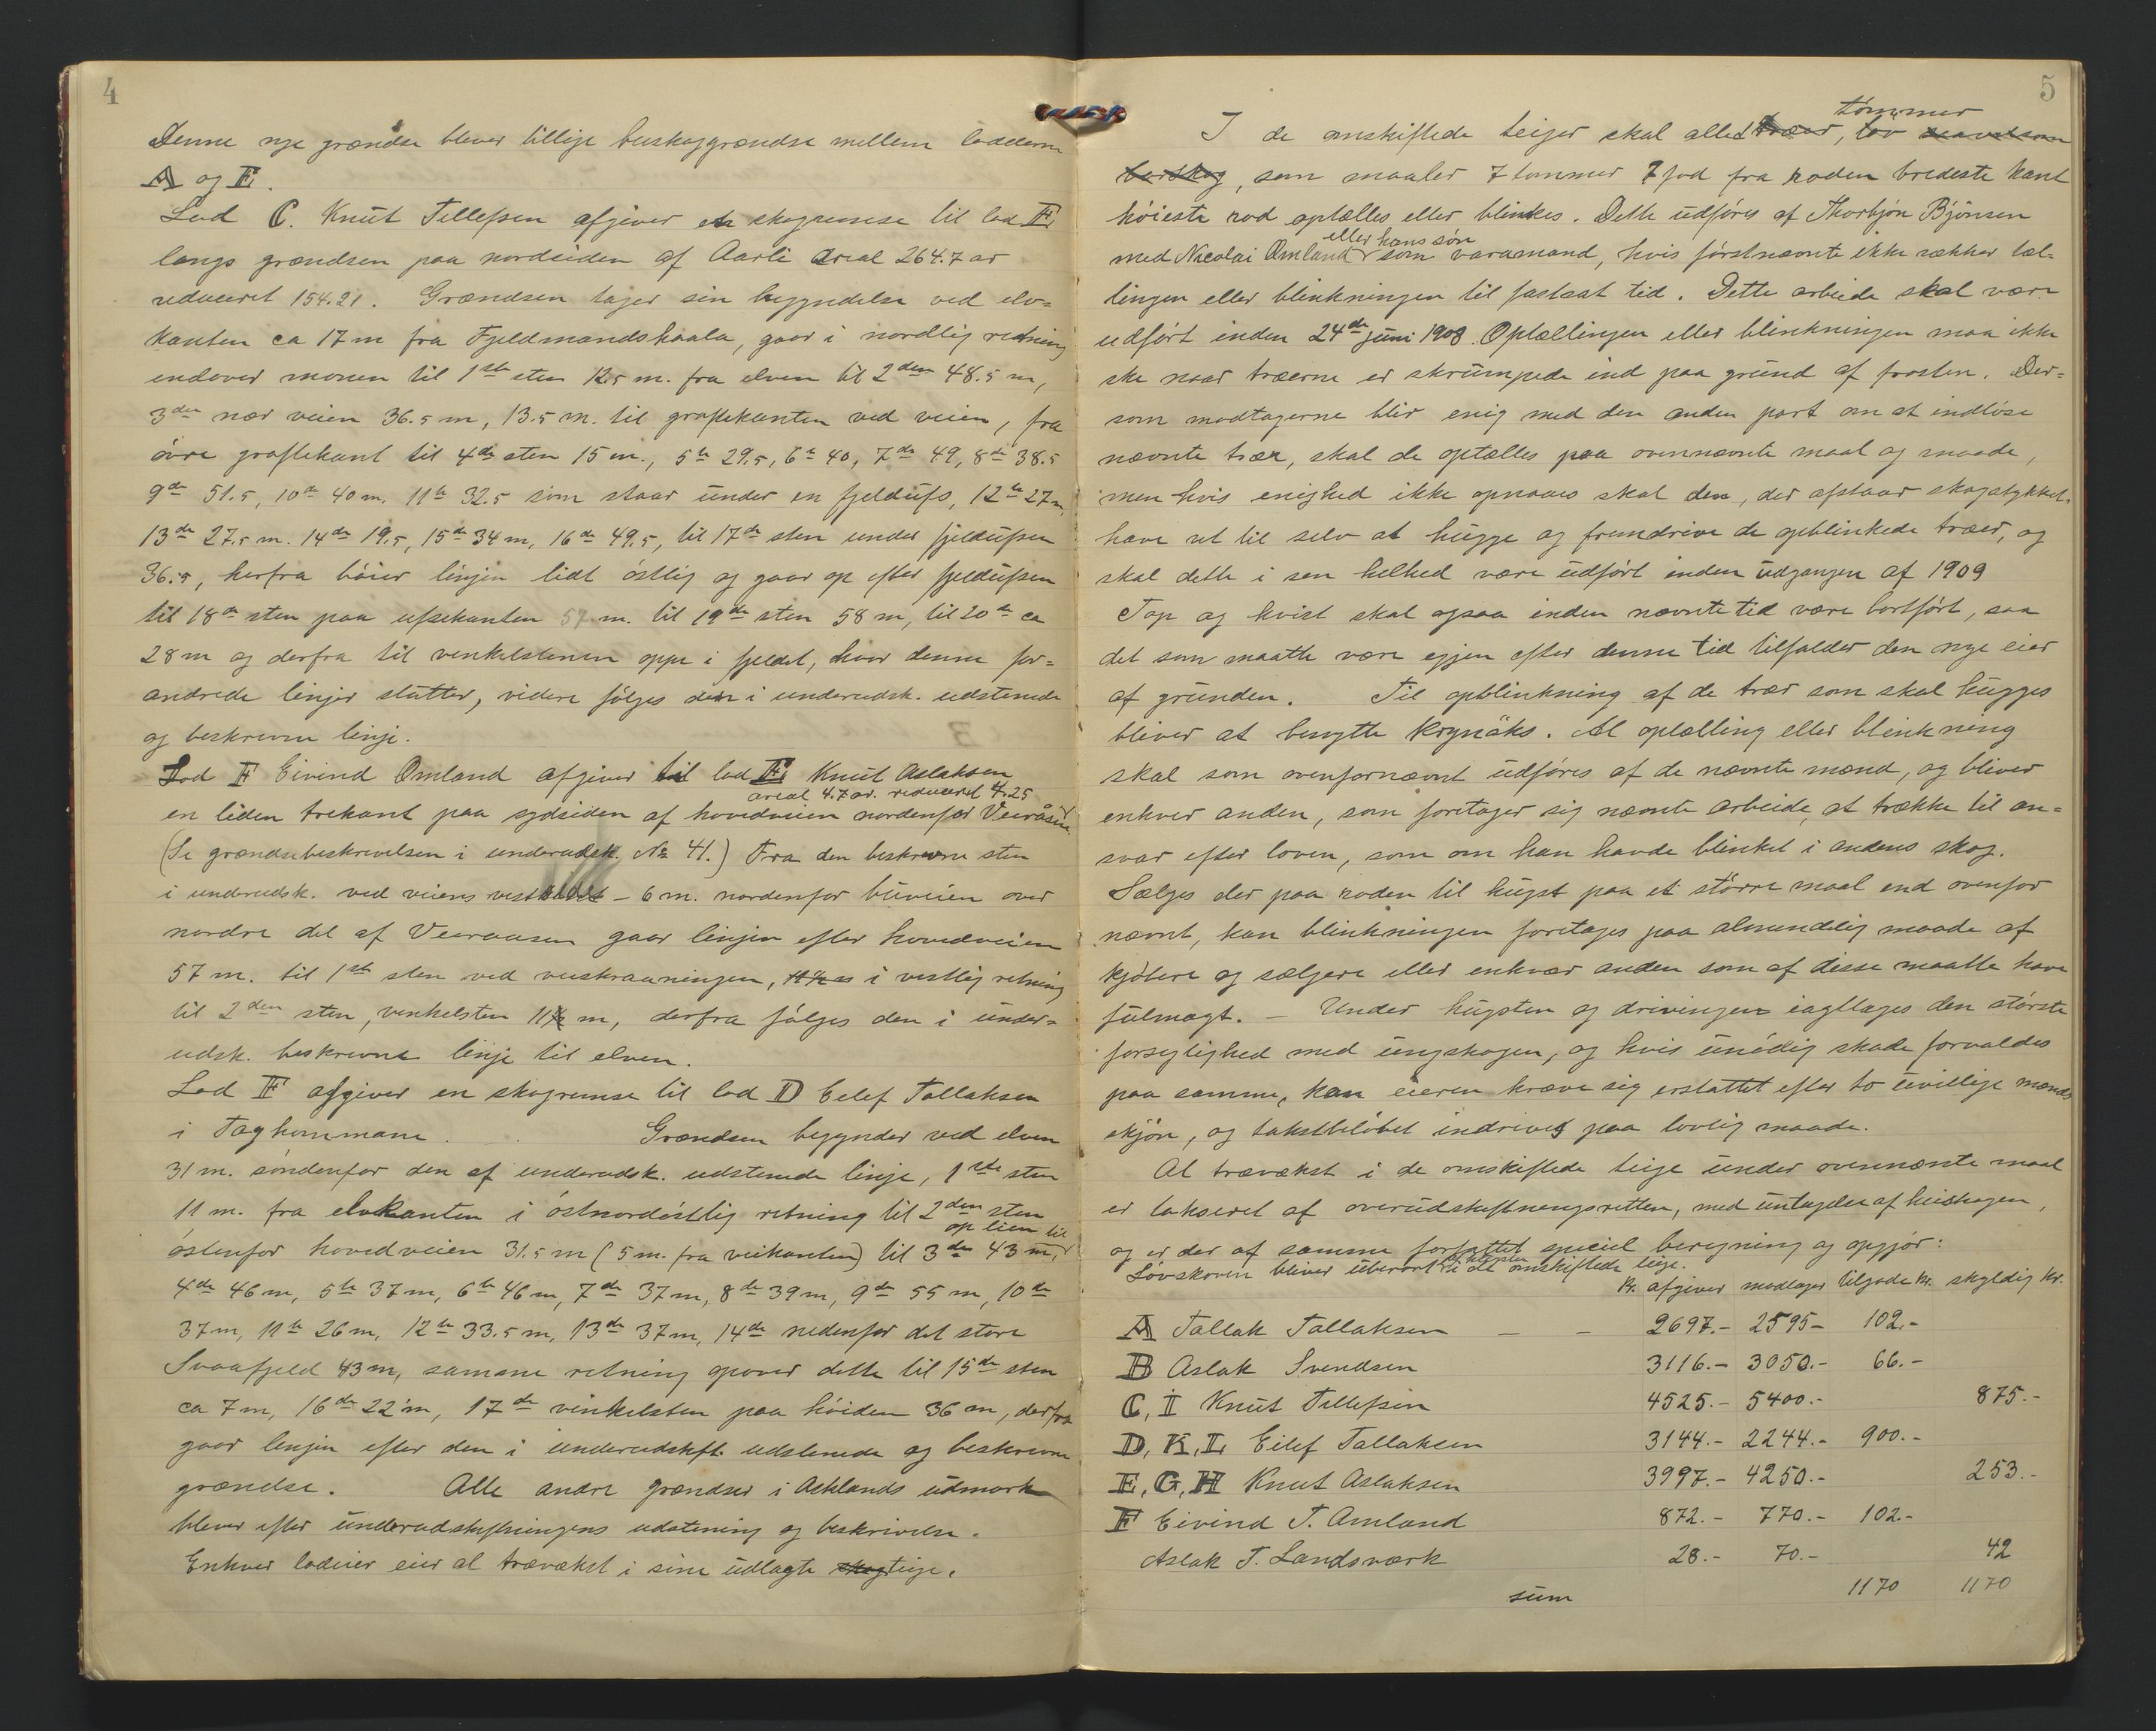 4
Denne nye grændse bliver tillige buskaggrændse mellem lodderne
A og E.
Lod C. Knut Tellefsen afgiver en skogremse til lod E
langs grændsen paa nordsiden af Aarli areal 264.7 ar
reduceret 154.21. Grændsen tager sin begyndelse ved elv=
kanten ca 17 m fra Fjeldmandshaala, gaar i nordlig retning
endover monen til 1ste sten 12.5 m. fra elven til 2den 48.5 m,
3die nær veien 36.5 m, 13.5 m. til grøftekanten ved veien, fra
övre grøftekant til 4de sten 15 m., 5te 29.5, 6te 40, 7de 49, 8de 38.5
9de 51.5, 10de 40 m. 11te 32.5 som staar under en fjeldufs, 12te 27 m,
13de 27.5 m. 14de 19.5, 15de 34 m, 16de 49.5, til 17de sten under fjeldufsen
36.5, herfra böier linjen lidt östlig og gaar op efter fjeldufsen
til 18de sten paa ufsekanten 57 m. til 19de sten 58 m, til 20de ca
28 m og derfra til venkelstenen oppe i fjeldet, hvor denne for=
andrede linjer slutter, videre fölges den i underudsk. udstenede
og beskrevne linje.
Lod F Eivind Omland afgiver til lod E Knut Aslaksen
areal 4.7 ar. reduceret 4.25
en liden trekant paa sydsiden af hovedveien nordenfor Veiråsen
(Se grændsebeskrivelsen i underudsk. No 41.) Fra den beskrevne sten
i underudsk. ved veiens vest – 6 m. nordenfor buveien over
nordre del af Veeraasen gaar linjen efter hovedveien
57 m. til 1ste sten ved veiskraaningen, i vestlig retning
til 2den sten, venkelsten 11 m, derfra fölges den i under=
udsk. beskrevne linje til elven.
Lod F afgiver en skogremse til lod D Eilef Tallaksen
i Taghommane. Grændsen begynder ved elven
31 m. söndenfor den af underudsk. udstenede linje, 1ste sten
11 m. fra elvekanten i östnordöstlig retning til 2den sten
op lien til
östenfor hovedveien 31.5 m (5 m. fra veikanten) til 3die 43 m,
4de 46 m, 5te 37 m, 6te 46 m, 7de 37 m, 8de 39 m, 9de 55 m, 10de
37 m, 11te 26 m, 12te 33.5 m, 13de 37 m, 14de nedenfor det store
Svaafjeld 43 m, samme retning opover dette til 15de sten
ca 7 m, 16de 22 m, 17de vinkelsten paa höiden 36 m, derfra
gaar linjen efter den i underudskift. udstenede og beskrevne
grændse. Alle andre grændser i Asklands udmark
bliver efter underudskiftningens udstening og beskrivelse.
Enhver lodeier eier al trævækst i sine udlagte skogteige.
5
tömmer
I de omskiftede teiger skal alle træer, löv saavel som
barskog, som maaler 7 tommer 7 fod fra roden bredeste kant
höieste rod optælles eller blinkes. Dette udföres af Thorbjön Bjönsen
eller hans sön
med Nicolai Omland som varamand, hvis förstnævnte ikke rækker tæl=
lingen eller blinkningen til fastsat tid. Dette arbeide skal være
udfört inden 24de juni 1908. Optællingen eller blinkningen maa ikke
ske naar træerne er skrumpede ind paa grund af frosten. Der=
som modtagerne blir enig med den anden part om at indlöse
nævnte trær, skal de optælles paa ovennævnte maal og maade,
men hvis enighed ikke opnaaes skal den, der afstaar skogstykket,
have ret til selv at hugge og fremdrive de opblinkede træer, og
skal dette i sen helhed være udfört inden udgangen af 1909
Top og kvist skal ogsaa inden nævnte tid være bortfört, saa
det som maatte være igjen efter denne tid tilfalder den nye eier
af grunden. Til opblinkning af de trær som skal hugges
bliver at benytte krynäks. Al optælling eller blinkning
skal som ovenfornævnt udföres af de nævnte mænd, og bliver
enhver anden, som foretager sig nævnte arbeide, at trække til an=
svar efter loven, som om han havde blinket i andens skog.
Sælges der paa roden til hugst paa et större maal end ovenfor
nævnt, kan blinkningen foretages paa almendelig maade af
kjöbere og sælgere eller enhver anden som af disse maatte have
fulmagt. – Under hugsten og drivingen iagttages den störste
forsiglighed med ungskogen, og hvis unödig skade forvaldes
paa samme, kan eieren kræve sig erstattet efter to uvillige mænds
skjön, og takstbelöbet indrives paa lovlig maade.
Al trævækst i de omskiftede teige under ovennævnte maal
er takseret af overudskiftningsretten, med untagelse af heiskogen,
og er der af samme forfattet speciel beregning og opgjör:
Lövskoven bliver uberört i de omskiftede teige.
Kr. afgiver modtager tilgode kr. skyldig kr.
A Tallak Tallaksen – – 2697.- 2595- 102.-
B Aslak Svendsen 3116.- 3050.- 66.-
C, I Knut Tellefsen 4525.- 5400.- 875.-
D, K, L Eilef Tallaksen 3144.- 2244.- 900.-
E, G, H Knut Aslaksen 3997.- 4250.- 253.-
F Eivind T. Omland 872.- 770.- 102.-
Aslak T. Landsværk 28.- 70.- 42
sum 1170 1170